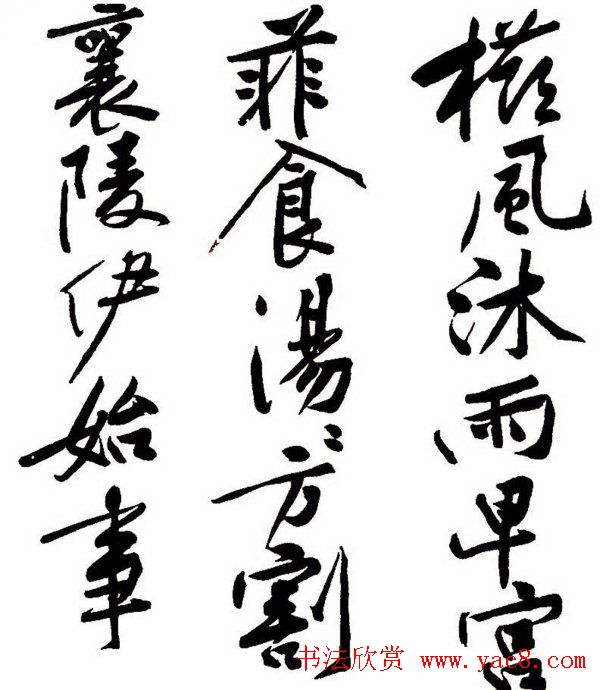 櫛風沐雨卑宮
菲食湯々方割
襄陵伊始事
书法欣赏 www.yac8.com